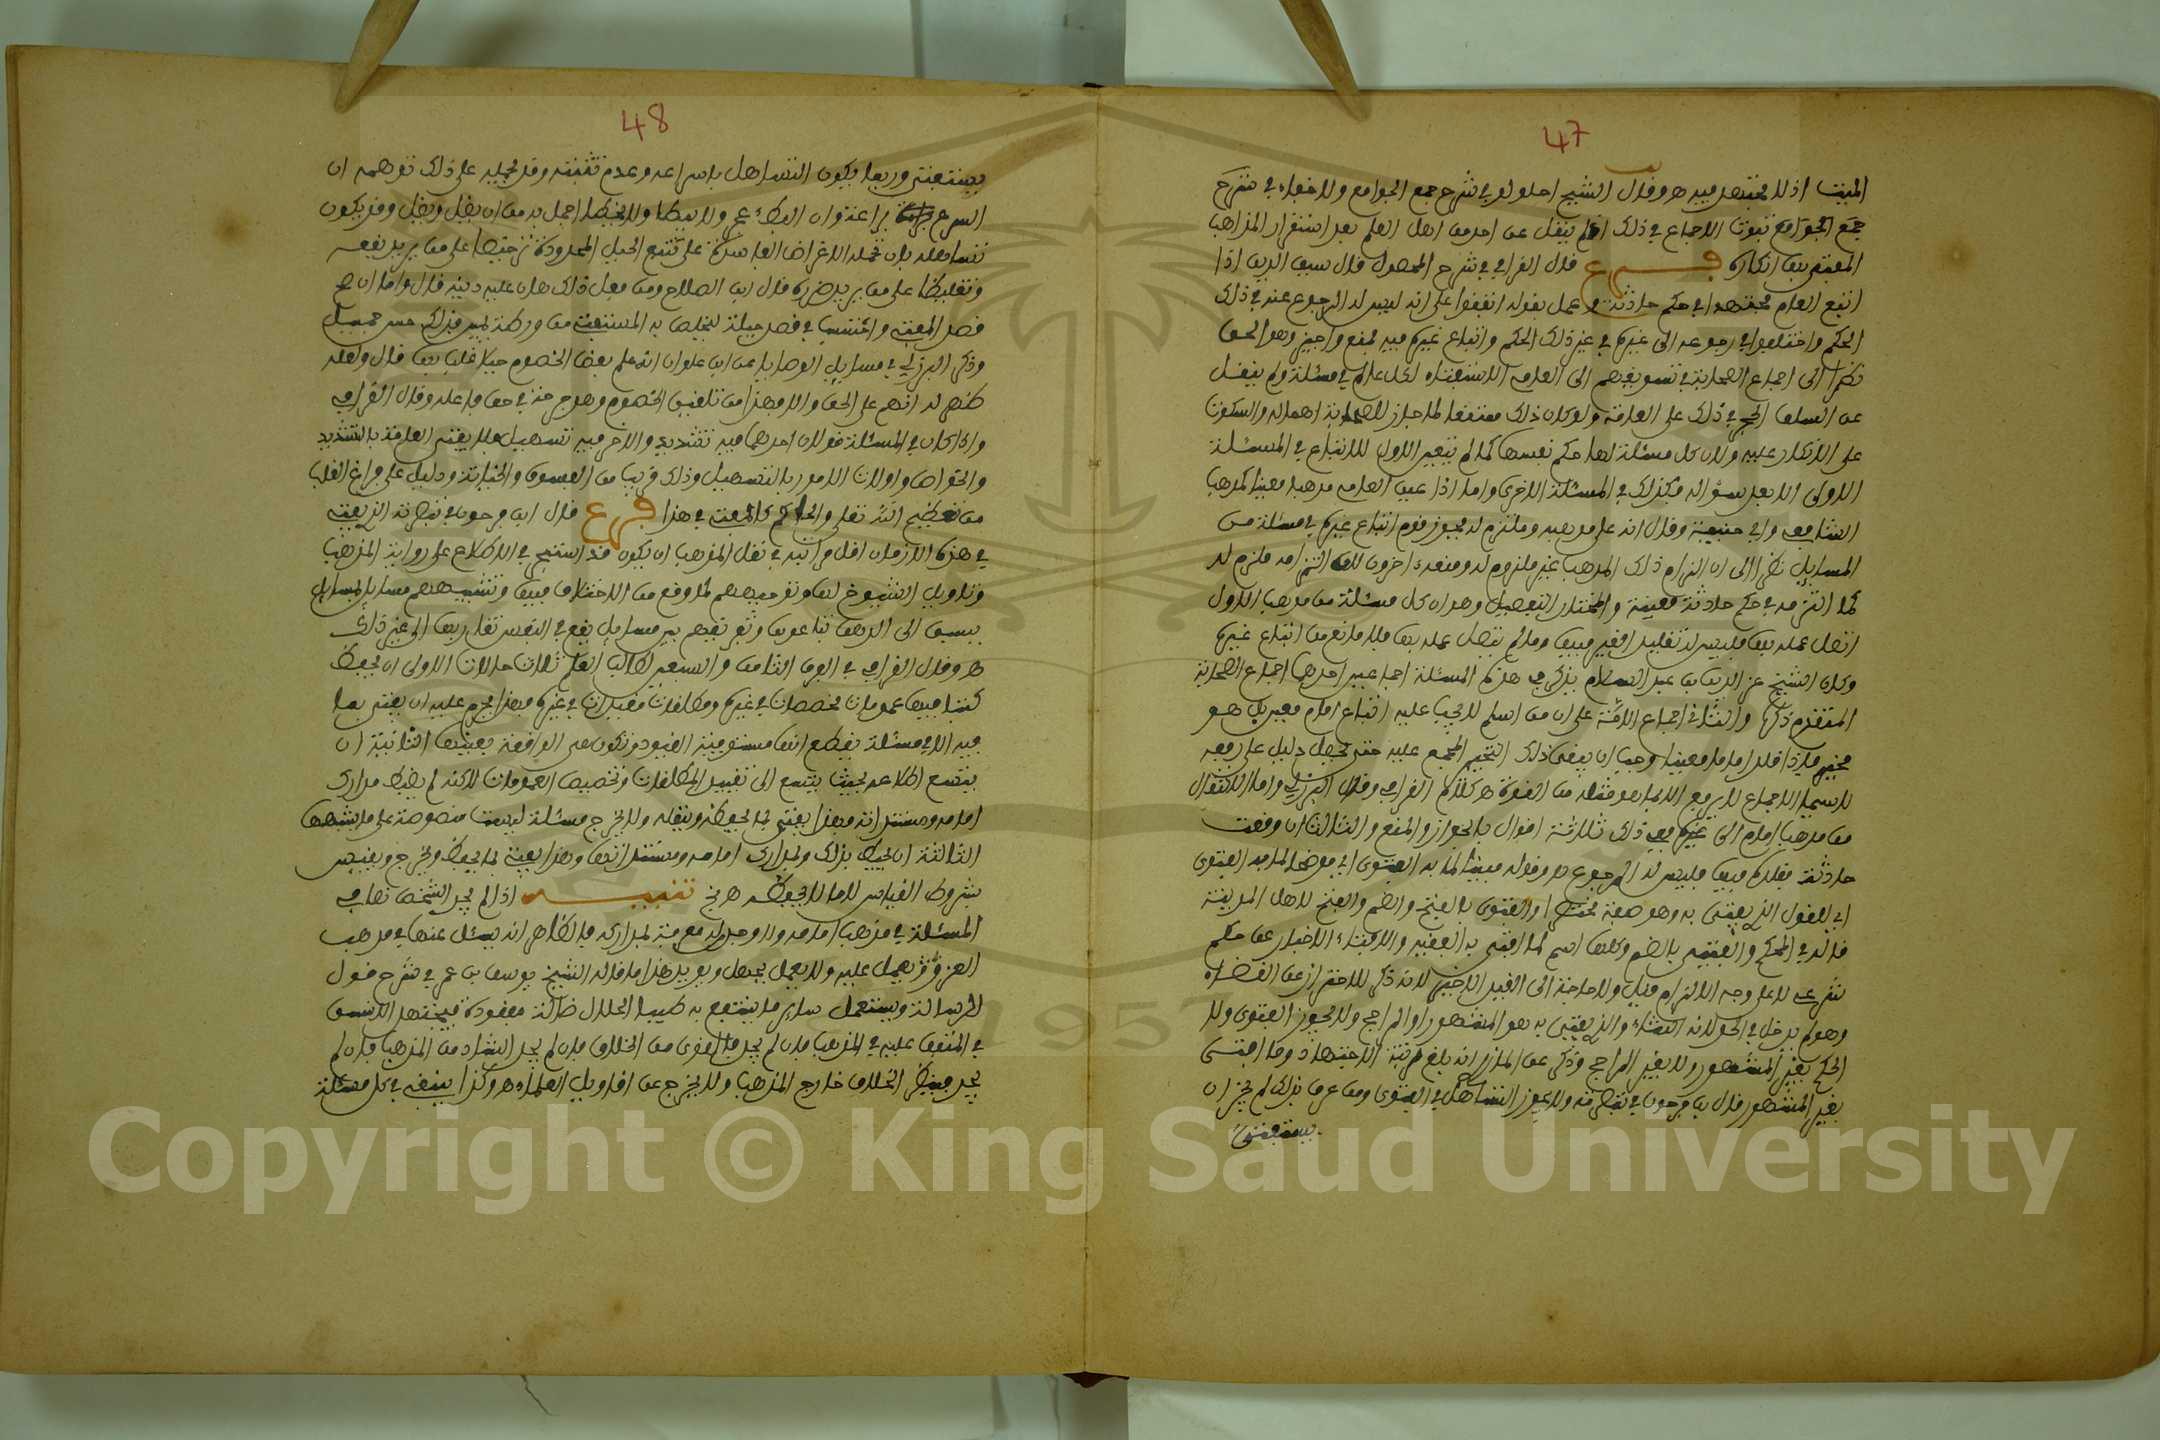 47
الميت اذ لا مجتهد فيه هـ وقال الشيخ احلولو في شرح جمع الجوامع ولا خفاء في شرح
جمع الجوامع ثبوت الاجماع في ذلك اذ لم ينقل عن احد من اهل العلم بعد استقرار المذاهب
المفتى بها انكاره فرع قال القرافي في شرح المحصول قال سيف الدين اذا
اتبع العامي مجتهدا في حكم حادثة وعمل بقوله اتفقوا على انه ليس له الرجوع عنه في ذلك
الحكم واختلفوا في رجوعه الى غيره في غير ذلك الحكم واتباع غيره فيه فمنع واجيز وهو الحق
نظرا الى اجماع الصحابة في تسويغهم الى العامي الاستفتاء لكل عالم في مسئلة ولم ينقل
عن السلف الحجر في ذلك على العامة ولو كان ذلك ممتنعا لما جاز للصحابة اهماله والسكوت
على الانكار عليه ولان كل مسئلة لها حكم نفسها كما لم يتعين الاول للاتباع في المسئلة
الاولى الا بعد سؤاله فكذلك في المسئلة الاخرى واما اذا عين العامي مذهبا معينا كمذهب
الشافعي وابي حنيفة وقال انه على مذهبه وملتزم له فجوز قوم اتباع غيره في مسئلة من
المسايل نظرا الى ان التزام ذلك المذهب غير ملزوم له ومنعه اخرون لان التزامه ملزم له
كما التزمه في حكم حادثة معينة والمختار التفصيل وهو ان كل مسئلة من مذهب الاول
اتصل عمله بها فليس له تقليد الغير فيها وما لم يتصل عمله بها فلا مانع من اتباع غيره
وكان الشيخ عز الدين بن عبد السلام يذكر في هذه المسئلة اجماعين احدهما اجماع الصحابة
المتقدم ذكره والثاني اجماع الامة على ان من اسلم لا يجب عليه اتباع امام معين بل هو
مخير فاذا قلد اماما معينا وجب ان يبقى ذلك التخيير المجمع عليه حتى يحصل دليل على رفعه
لاسيما الاجماع لا يرفع الا بما هو مثله من القوة هـ كلام القرافي وقال البرزلي واما الانتقال
من مذهب امام الى غيره ففي ذلك ثلاثة اقوال بالجواز والمنع والثالث ان وقعت
حادثة فقلده فيها فليس له الرجوع هـ وقوله مبينا لما به الفتوى اي موضحا لما به الفتوى
اي للقول الذي يفتى به وهو صفة مختصرا والفتوى بالفتح والضم والفتح لاهل المدينة
قاله في المحكم والفتيى بالضم وكلها اسم لما افتى به الفقيه والافتاء الاخبار عن حكم
شرعي لا على وجه الالزام قيل ولا حاجة الى القيد الاخير لانه ذكر للاحتراز عن القضاء
وهو لم يدخل في الحد لانه انشاء والذي يفتى به هو المشهور او الراجح ولا يجوز الفتوى ولا
الحكم بغير المشهور ولا بغير الراجح وذكر عن المازري انه بلغ مرتبة الاجتهاد وما افتى
بغير المشهور قال ابن فرحون في تبصرته ولا يجوز التساهل في الفتوى ومن عرف بذلك لم يجز ان
يستفتى
48
يستفتى وربما يكون التساهل باسراعه وعدم تثبته وقد يحمله على ذلك توهمه ان
السرعة براعة وان البطء عجز ولان يبطئ ولا يخطئ اجمل به من ان يضل ويضل وقد يكون
تساهله بان تحمله الاغراض الفاسدة على تتبع الحيل المحذورة ترخيصا على من يريد نفعه
وتغليظا على من يريد ضره قال ابن الصلاح ومن فعل ذلك هان عليه دينه قال واما ان صح
قصد المفتي واحتسب في قصد حيلة ليخلص به المستفتي من ورطة يمين فذلك حسن جميل
وذكر البرزلي في مسايل الوصايا عن ابن علوان انه علم بعض الخصوم حيلا غلب بها قال ولعله
ظهر له انهم على الحق والا فهذا من تلقين الخصوم وهو جرحة في حق فاعله وقال القرافي
واذا كان في المسئلة قولان احدهما فيه تشديد والاخر فيه تسهيل فلا يفتى العامة بالتشديد
والخواص وولات الامور بالتسهيل وذلك قريب من الفسوق والخيانة ودليل على فراغ القلب
من تعظيم الله تعلى والحاكم كالمفتي في هذا فرع قال ابن فرحون في تبصرته الذي يفتي
في هذه الازمان اقل مراتبه في نقل المذهب ان يكون قد استبحر في الاطلاع على رواية المذهب
وتاويل الشيوخ لها وتوجيههم لما وقع من الاختلاف فيها وتشبيههم مسايل بمسايل
يسبق الى الذهن تباعدها وتفريقهم بين مسايل يقع في النفس تقاربها الى غير ذلك
هـ وقال القرافي في الفرق الثامن والسبعين لطالب العلم ثلاث حالات الاولى ان يحفظ
كتابا فيه عمومات مخصصات في غيره ومطلقات مقيدات في غيره فهذا يحرم عليه ان يفتي بما
فيه الا في مسئلة يقطع انها مستوفية القيود وتكون هي الواقعة بعينها الثانية ان
يتسع اطلاعه بحيث يتسع الى تقييد المطلقات وتخصيص العمومات لاكنه لم يضبط مدارك
امامه ومستنداته فهذا يفتي بما يحفظه وينقله ولا يخرج مسئلة ليست منصوصة على ما يشبهها
الثالثة ان يحيط بذلك وبمدارك امامه ومستنداتها وهذا يفتي بما يحفظ ويخرج ويقيس
بشروط القياس لاما لا يحفظه هـ تنبيه اذا لم يجد الشخص نصا في
المسئلة في مذهب امامه ولا وجد له معرفة بمداركه فالظاهر انه يسئل عنها في مذهب
الغير ويعمل عليه ولا يعمل بجهل ويؤيد هذا ما قاله الشيخ يوسف بن عمر في شرح قول
الرسالة ويستعمل ساير ما ينتفع به طيبا الحلال ضالة مفقودة فيجتهد الانسان
في المتفق عليه في المذهب فان لم يجد فالقوي من الخلاف فان لم يجد الشاذ من المذهب فان لم
يجد فينظر الخلاف خارج المذهب ولا يخرج عن اقاويل العلماء هـ وكذا ينبغي في كل مسئلة
Copyright © King Saud University
1957